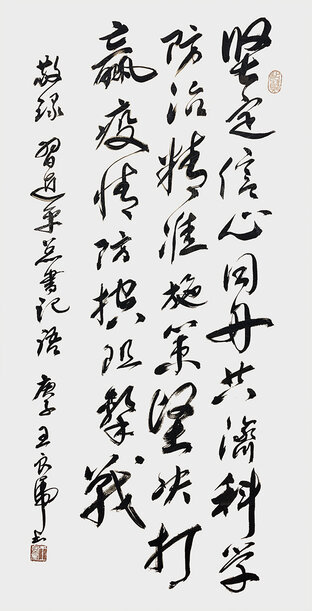 坚定信心同舟共济科学
防治精准施策坚决打
赢疫情防控阻击战
敬录 习近平总书记语 庚子 王